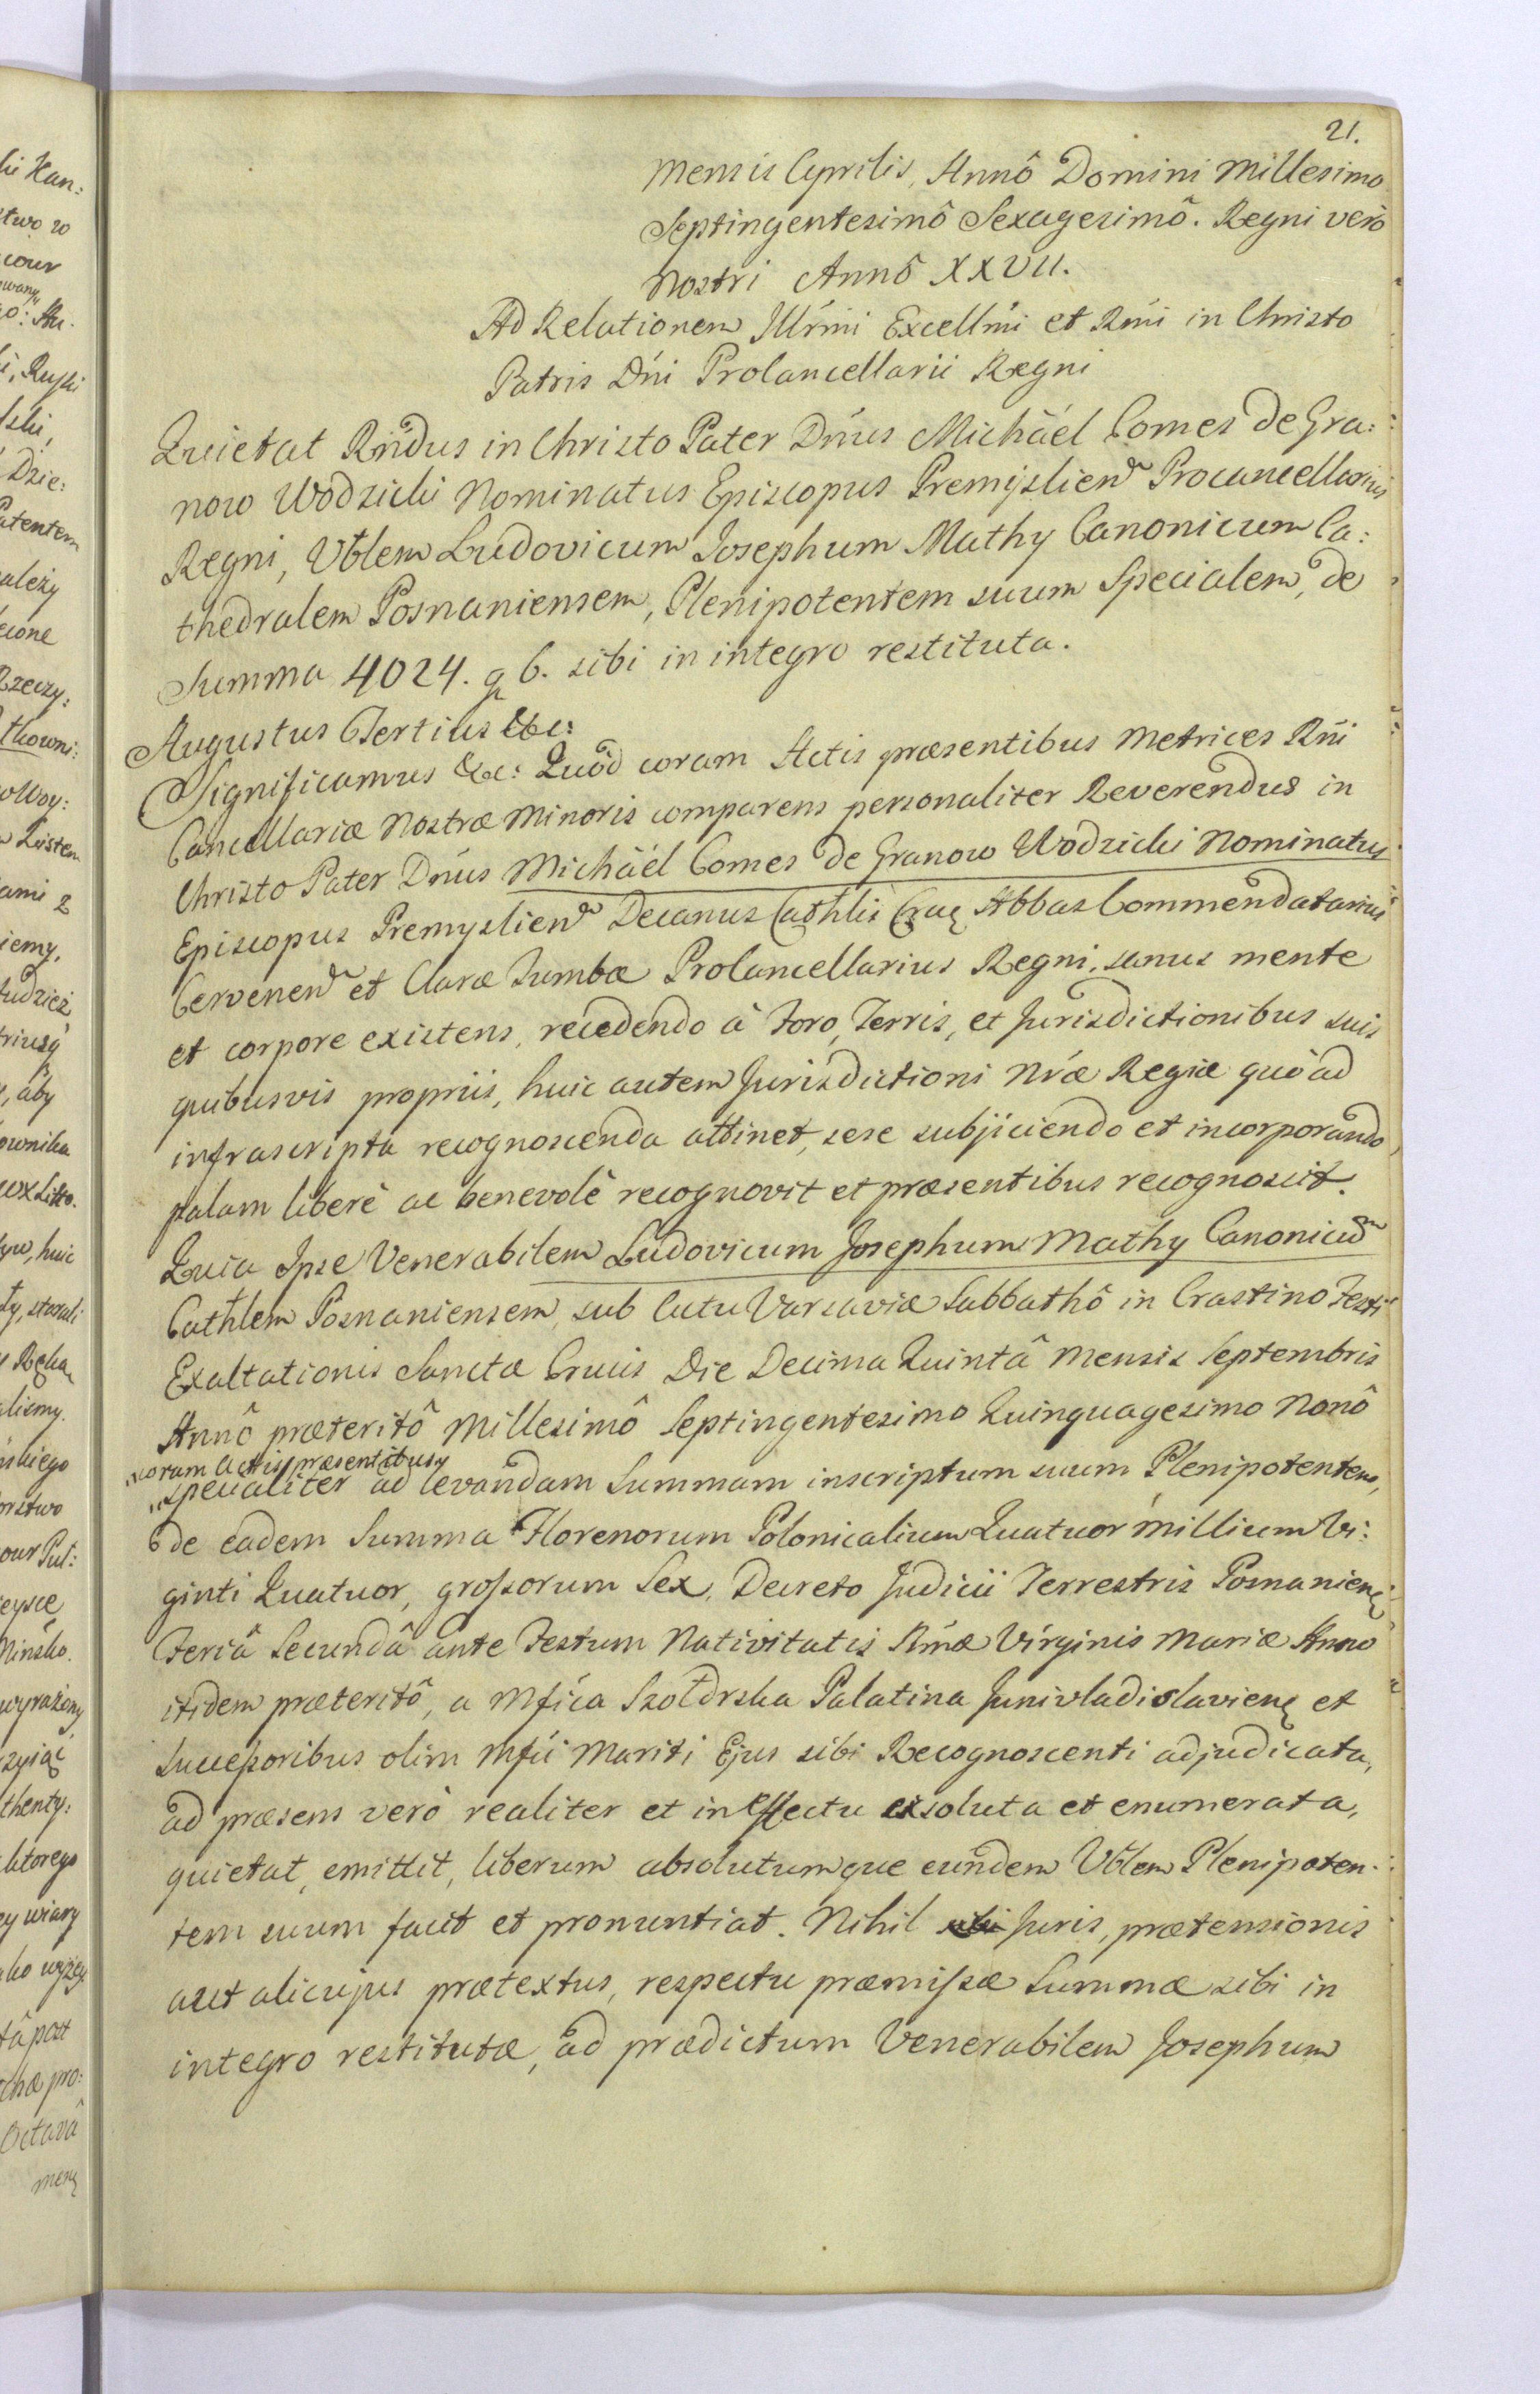 21.
Mensis Aprilis, Annô Domini Millesimo
Septingentesimô Sexagesimô. Regni verò
Nostri Annô XXVII.
Ad Relationem Illr̃mi Excellm̃i et Rm̃i in Christo
Patris Dńi ProCancellarii Regni
Quietat Rńdus in Christo Pater Dńus Michäél Comes de Gra:
now Wodzicki Nominatus Episcopus Premÿslien Procancellarius
Regni, Vblem Ludovicum Josephum Mathy Canonicum Ca:
thedralem Posnaniensem, Plenipotentem suum Specialem, de
Summa 4024. g 6. sibi in integro restituta.
Augustus Tertius &c:
Significamus &c: Quôd coram Actis præsentibus Metrices Rńi
Cancellariæ Nostræ Minoris comparens personaliter Reverendus in
Christo Pater Dńus Michäél Comes de Granow Wodzicki Nominatus
Episcopus Premyslien Decanus Cathlis Crac Abbas Commendatarius
Cervenen et Claræ Tumbæ ProCancellarius Regni, sanus mente
et corpore existens, recedendo â Foro, Terris, et Jurisdictionibus suis
quibusvis propriis, huic autem Jurisdictioni Nrǽ Regiæ quò ad
infrascripta recognoscenda attinet, sese subjiciendo et incorporando,
palam liberè ac benevolè recognovit et præsentibus recognoscit.
Quia Ipse Venerabilem Ludovicum Josephum Mathy Canonicum
Cathlem Posnaniensem, sub Actu Varsaviæ Sabbathô in Crastino Festi
Exaltationis Sanctæ Crucis Die Decima Quintâ Mensis Septembris
Annô præteritô Millesimô Septingentesimo Quinquagesimo Nonô
coram Actis præsentibus
specialiter ad levandam Summam inscriptum suum Plenipotentem,
de eadem Summa Florenorum Polonicalium Quatuor Millium Vi:
ginti Quatuor, grossorum Sex, Decreto Judicii Terrestris Posnanien
Feriâ Secundâ ante Festum Nativitatis Bmæ Virginis Mariæ Anno
itidem præteritô, a Mfica Szołdrska Palatina Junivladislavien et
Successoribus olim Mfici Mariti Ejus sibi Recognoscenti adjudicata,
ad præsens verò realiter et in effectu exsoluta et enumerata,
quietat, emittit, liberum absolutumque eundem Vblem Plenipoten:
tem suum facit et pronuntiat. Nihil sibi Juris, prætensionis
aut alicujus prætextus, respectu præmissæ Summæ sibi in
integro restitutæ, ad prædictum Venerabilem Josephum